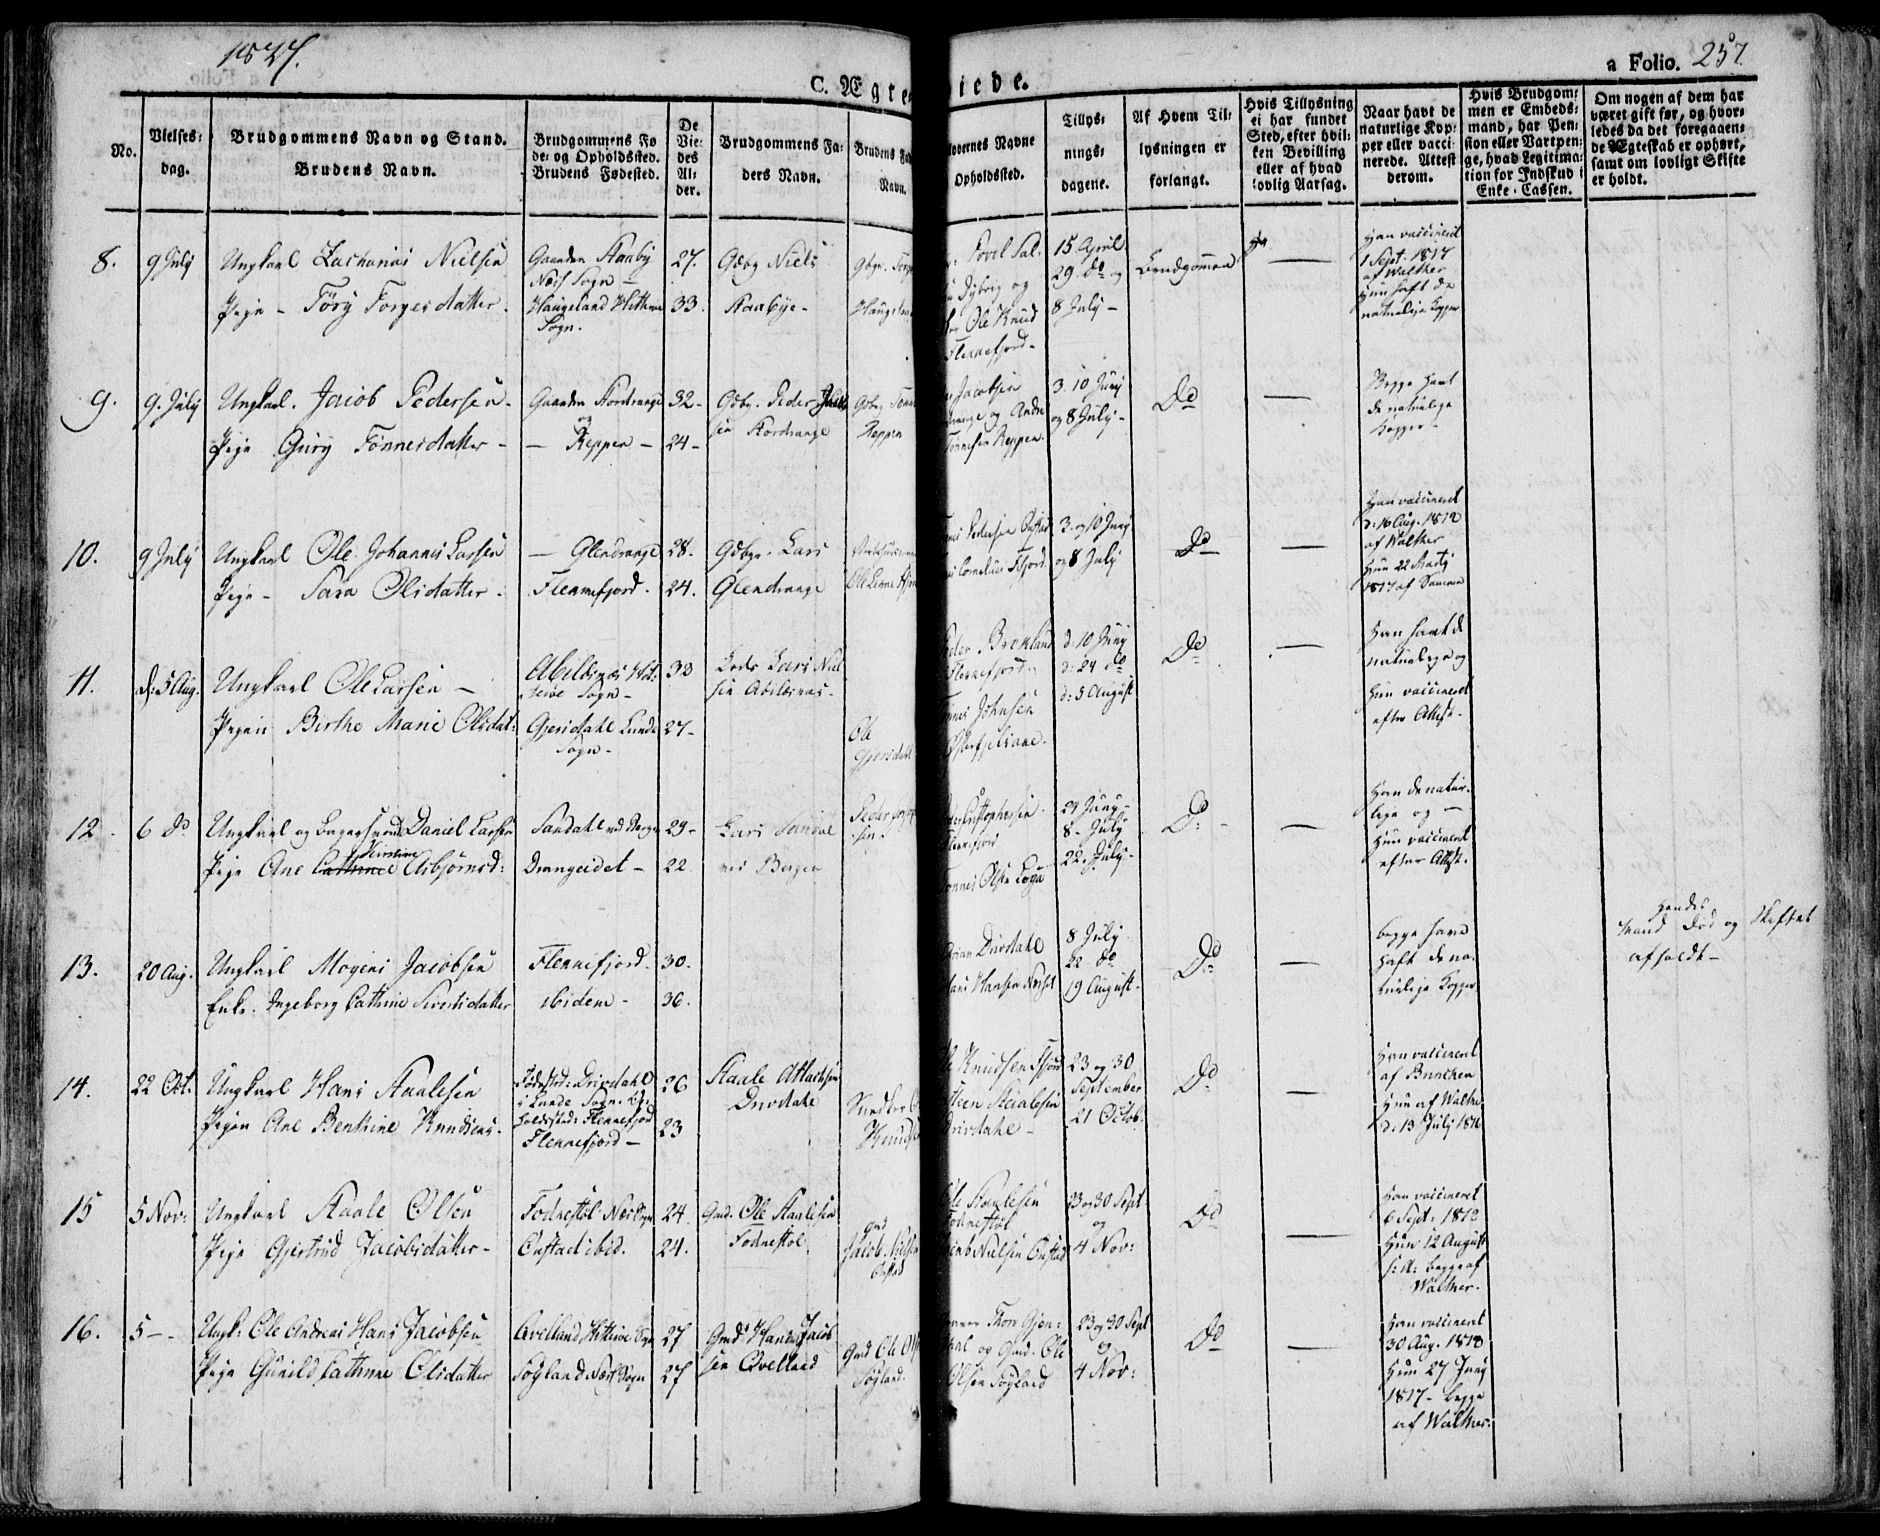 1827.
a Folio. 257
C. Ægte
iede.
No.
Vielses-
dag.
Brudgommens Navn og Stand.
Brudens Navn.
Brudgommens Fø
de- og Opholdssted.
Brudens Fødested.
De
Vie-
des
Al-
der.
Brudgommens Fa-
ders Navn.
Brudens
Navn.
lovernes Navne
Opholdssted.
Tillys-
nings-
dagene.
Af Hvem Til-
lysningen er
forlangt.
Hvis Tillysning
ei har fundet
Sted, efter hvil-
ken Bevilling
eller af hvad
lovlig Aarsag.
Naar havt de
naturlige Kop-
per eller vacci-
nerede. Attest
derom.
Hvis Brudgom-
men er Embeds-
mand, har Pen-
sion eller Vartpen-
ge, hvad Legitima-
tion for Indskud i
Enke-Cassen.
Om nogen af dem har
været gift før, og hvor-
ledes da det foregaaen-
de Ægteskab er ophørt,
samt om lovligt Skifte
er holdt.
8.
9 July
Ungkarl Zacharias Nielsen
Pige - Tõry Torgersdatter.
Gaarden Raaby
Næs Sogn -
Haugeland Hitterøe
Sogn.
27.
33.
Gbbr Niels
Raabye-
Povel Sal-
Dybvig og
Ole Knud
Flennefjord-
15 April
29. do og
8 July -
Brudgommen
Han vaccineret
1 Sept. 1817
af Walther
Hun haft de
naturlige Kopper
9.
9. July
Ungkarl. Jacob Pedersen -
Pige Gury Tönnesdatter -
Gaarden Nordrange
- Reppen -
32-
24-
Gbbr. Peder
sen Nordrange
Reppen
Jacobsen
Tönnesen Reppen.
3. 10 Juny
og 8 July -
Do
Begge havt
de naturlige
Kopper -
10.
9 July
Ungkarl Ole Johannes Larsen
Pige - Sara Olisdatter -
- Glendrange
Flennefjord.
28.
24.
Gbbr. Lars
Glendrange
3. og 10 Juny
og 8 July
Do
Han vaccineret
d: 16 Aug. 1812
af Walther
Hun 22 Martj
1817 af
11.
d: 5 Aug.
Ungkarl Ole Larsen -
Pigen Birthe Marie Olisdat:
Abilsnæs Hit-
terøe Sogn -
Gjersdahl Lunde
Sogn -
33
27-
Lars Niel
sen Abilsnæs-
Ole
Gjersdahl
Flennefjord.
Johnsen
d: 10 Juny
d: 24 do
d: 5 August
Do
Han havt de
naturlige og
Hun vaccineret
efter Attest -
12.
6 do
Ungkarl og Daniel Larsen
Pige Ane Cathrine Kirstine Asbjørnsd:
Sandahl ved Bergen
Drangeidet -
29-
22
Lars Sandal
ved Bergen
Peder
sen-
Flennefjord
Tönnes Olsen
24 Juny -
8. July
22. July -
Do
Han de natur-
lige og -
Hun vaccineret
efter Attest.
13.
20 Aug.
Ungkarl Mogens Jacobsen
Enke. Ingeborg Cathrine Sivertsdatter
Flennefjord.
ibidem -
30.
36.
Drivdahl
Hansen
8 July
22 do
19 August -
Do
begge have
haft de na-
turlige Kopper
Hendes
Mand død og Skiftet
afholdt -
14.
22 Oct.
Ungkarl Hans Staalesen
Pigen Ane Benthine Knudsens-
Fødested: Drivdahl
i Lunde Sogn. Op-
holdssted: Flennefjord
Flennefjord -
26
23
Staale Attlachsen
Drivdahl
Knudsen
Steen Staalesen
Drivdahl -
23 og 30
September
21 Octob.
Do
Han vaccineret
af Buncken
Hun af Walther
d. 13 July 1816
15
5 Nov:
Ungkarl Staale Olsen
Pige Gjertrud Jacobsdatter -
Fodnestøl Næs Sogn
Onstad ibid.
24.
24.
Gmd. Ole Staalesen
Fodnestøl.
Gmd
Jacob Nielsen
Onstad
Ole Staalesen
Fodnestøl
Jacob Nielsen Onstad
23 og 30 Sept
og
4 Nov:
Do
Han vaccineret
6 Sept. 1812
Hun 12 August
s: A: begge af
Walther.
16.
5 -
Ungk: Ole Andreas Hans Jacobsen
Pige Gunild Cathrine Olisdatter
Qvelland Hitterøe Sogn
Søyland Næs Sogn
27
27
Gmd Hans Jacob
sen Qvelland
Gmd Ole Ols
Søyland.
og Gmd. Ole
Olsen Søyland
23 og 30 Sept
og
4 Nov:
Do
Han vaccineret
30 Aug. 1818
Hun 27 Juny
1817 - begge
af Walther.